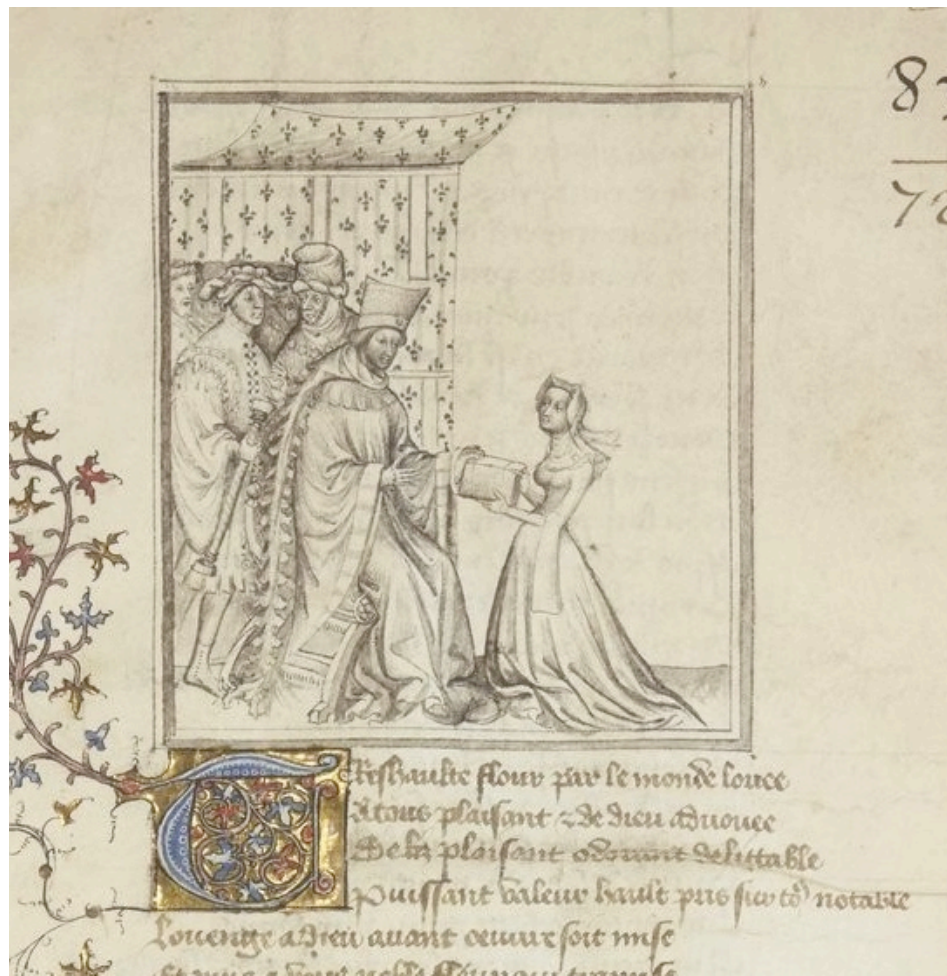 8
7
TReshaulte flour par le monde louee
A tous plaisant ⁊ de dieu aduouee
De liz plaisant odourant delittable
Puissant valeur hault pris sur toꝰ notable
Louenge a dieu auant oeuure soit mise